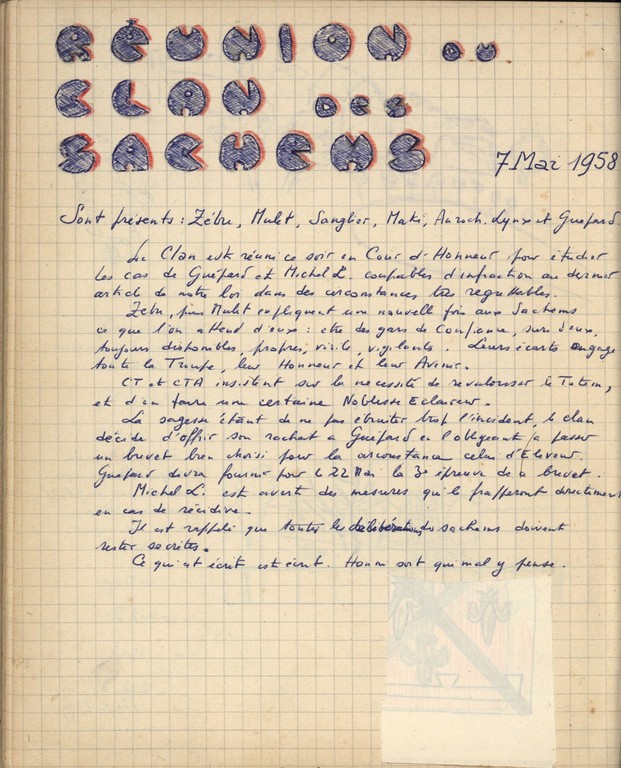 RÉUNION DU
CLAN DES
SACHEMS
7 Mai 1958
Sont présents : Zébu, Mulet, Sanglier, Maki, Auroch, Lynx et Guépard
Le Clan est réuni ce soir en Cour d'Honneur pour étudier
les cas de Guépard et Michel L. coupables d'infraction au dernier
article de notre loi dans des circonstances très regrettables.
Zébu, puis Mulet expliquent une nouvelle fois aux Sachems
ce que l'on attend d'eux : etre des gars de Confiance, surs d'eux,
toujours disponibles, propres, virils, vigilants. Leurs écarts engage
toute la Troupe, leur Honneur et leur Avenir.
CT et CTA insistent sur la necessité de revaloriser le Totem,
et d'en faire une certaine Noblesse Eclaireur.
La sagesse étant de ne pas ebruiter trop l'incident, le clan
décide d'offrir son rachat a Guépard en l'obligeant a passer
un brevet bien choisi pour la circonstance celui d'Eleveur.
Guépard devra fournir pour le 22 Mai la 3e épreuve de ce brevet.
Michel L. est averti des mesures qui le frapperont directement
en cas de récidive.
Il est rappelé que toutes les délibérations des sachems doivent
rester secrètes.
Ce qui est écrit est écrit. Honni soit qui mal y pense.